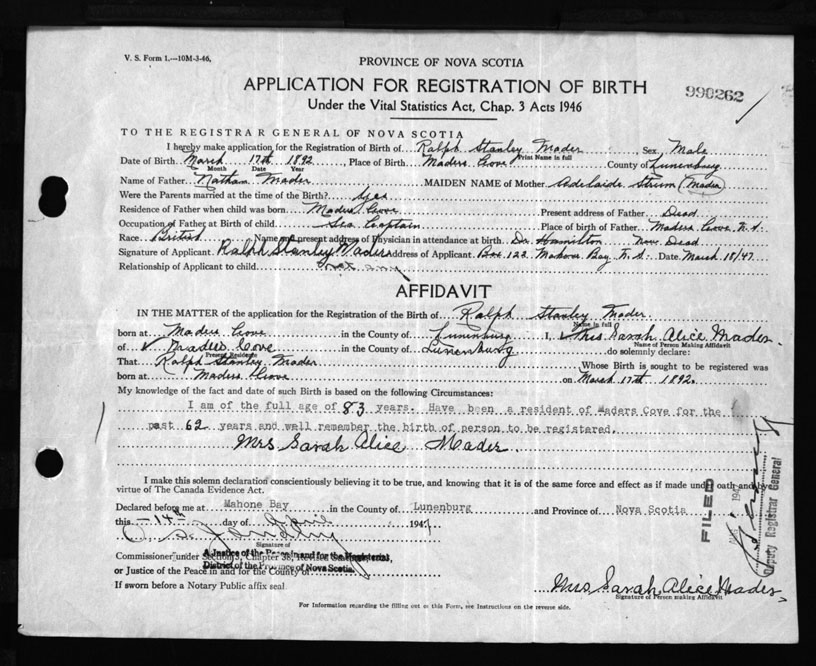 V. S. Form 1.—10M-3-46.
PROVINCE OF NOVA SCOTIA
APPLICATION FOR REGISTRATION OF BIRTH
990262
Under the Vital Statistics Act, Chap. 3 Acts 1946
TO THE REGISTRAR GENERAL OF NOVA SCOTIA
I hereby make application for the Registration of Birth of Ralph Stanley Mader Sex Male
Print Name in full
Date of Birth March 17th 1892, Place of Birth Maders Cove County of Lunenburg
Month Date Year
Name of Father Nathan Mader MAIDEN NAME of Mother Adelaide Strum (Mader)
Were the Parents married at the time of the Birth? Yes
Residence of Father when child was born Maders Cove Present address of Father Dead
Occupation of Father at Birth of child Sea Captain Place of birth of Father Maders Cove N.S.
Race British Name and present address of Physician in attendance at birth Dr. Hamilton Now Dead
Signature of Applicant Ralph Stanley Mader Address of Applicant Box 122 Mahone Bay, N.S. Date March 18/47
Relationship of Applicant to child
AFFIDAVIT
IN THE MATTER of the application for the Registration of the Birth of Ralph Stanley Mader
Name in full
born at Maders Cove in the County of Lunenburg I, Mrs Sarah Alice Mader
Name of Person Making Affidavit
of Maders Cove in the County of Lunenburg do solemnly declare:
Present Residence
That Ralph Stanley Mader Whose Birth is sought to be registered was
born at Maders Cove on March 17th 1892.
My knowledge of the fact and date of such Birth is based on the following Circumstances:
I am of the full age of 83 years. Have been a resident of Maders Cove for the
past 62 years and well remember the birth of person to be registered.
Mrs Sarah Alice Mader.
I make this solemn declaration conscientiously believing it to be true, and knowing that it is of the same force and effect as if made under oath and by
virtue of The Canada Evidence Act.
Declared before me at Mahone Bay in the County of Lunenburg and Province of Nova Scotia
this 14th day of April 1947
Signature of
Commissioner under Section 3, Chapter 38,
A Justice of the Peace in and for the Magisterial
District of the Province of Nova Scotia.
or Justice of the Peace in and for the County of
If sworn before a Notary Public affix seal
Mrs Sarah Alice Mader
Signature of Person making Affidavit
For Information regarding the filling out of this Form, see Instructions on the reverse side.
FILED
194
Deputy Registrar General